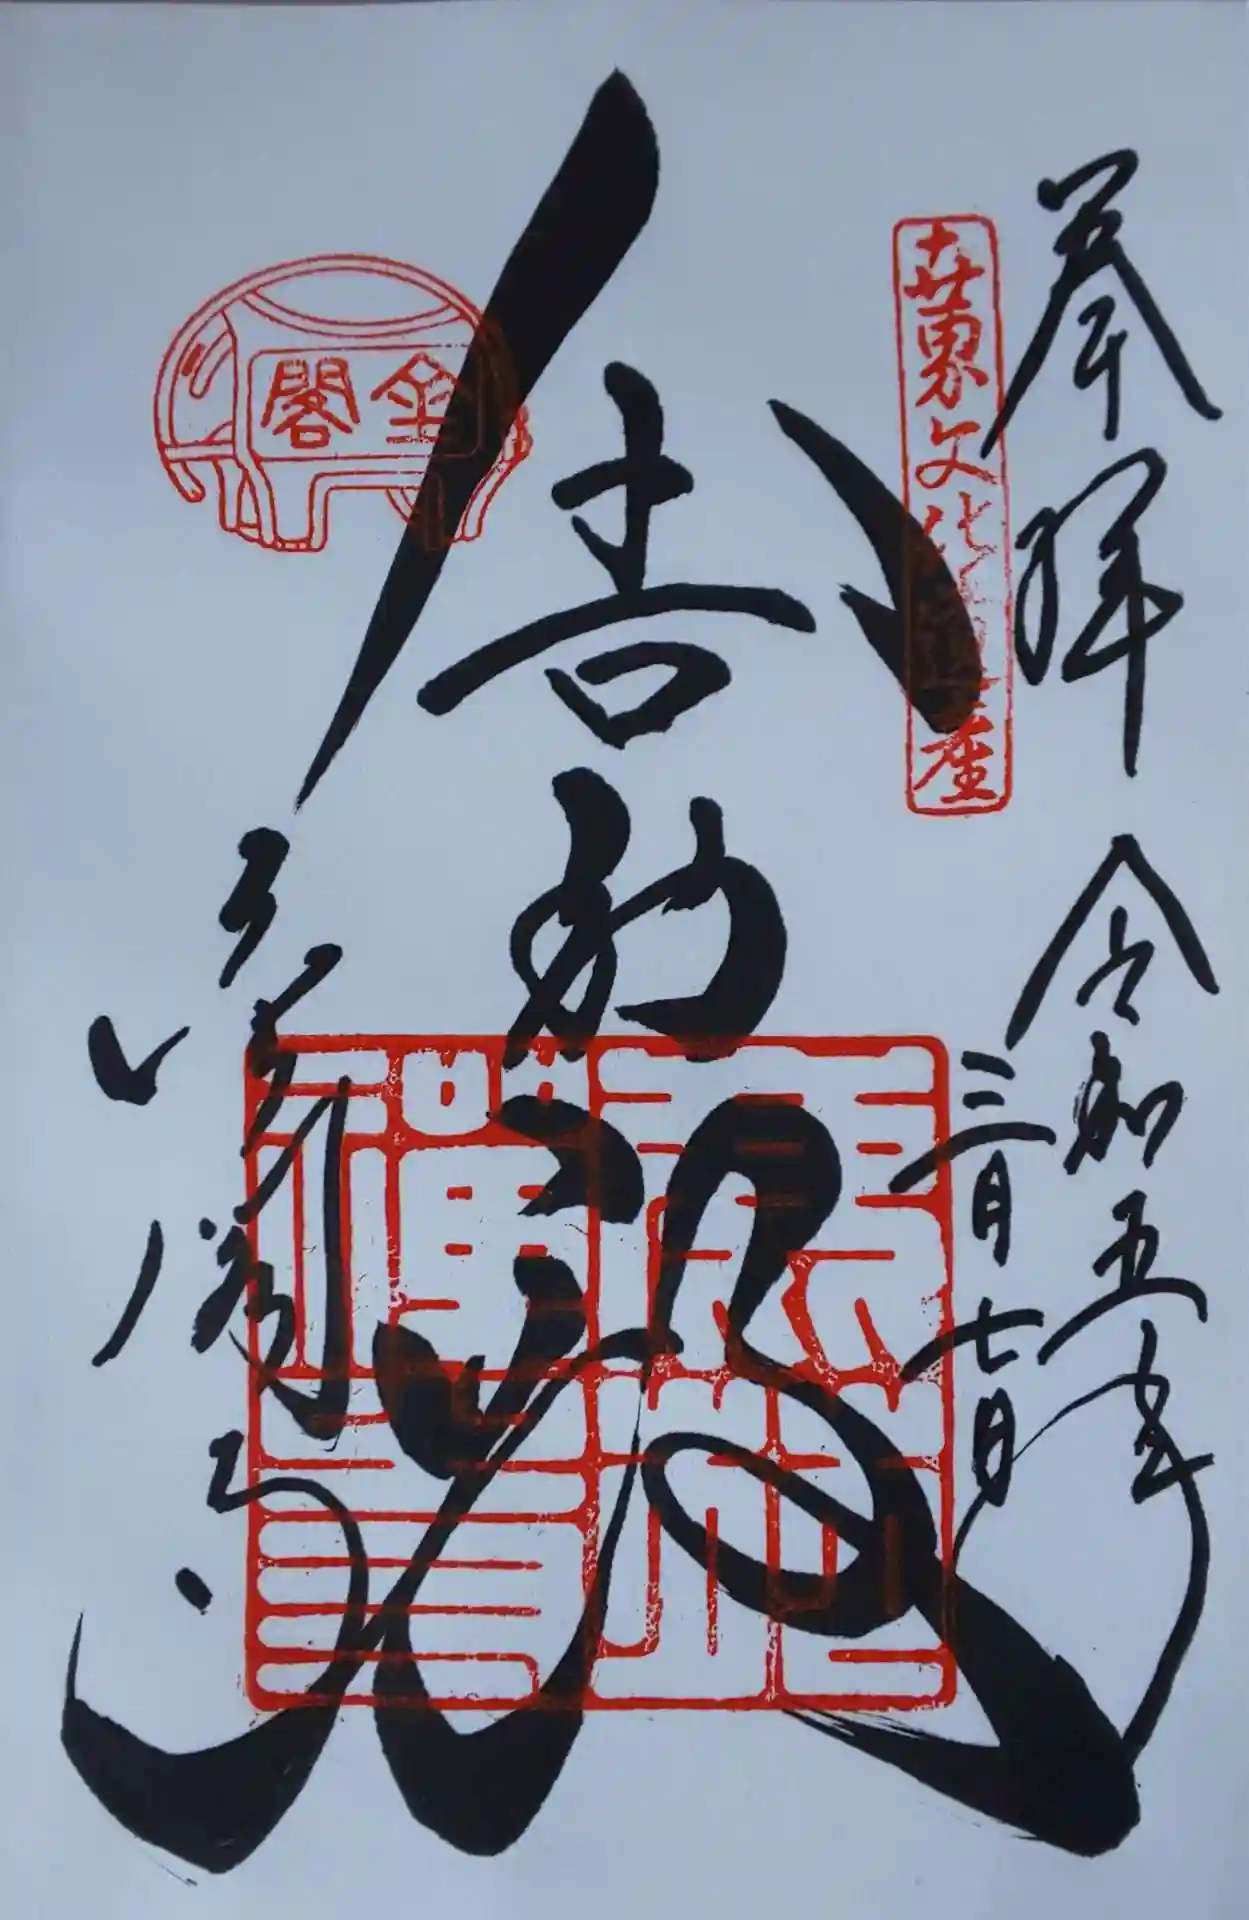 奉拝
令和五年
三月七日
世界文化遺産
舎利殿
金閣
鹿苑禅寺